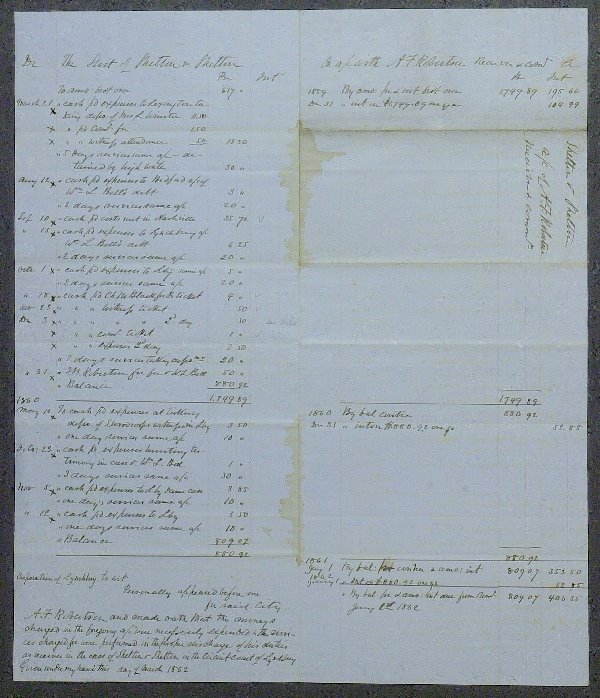 Dr The Suit of Shelton v Shelton
Pri Int
To amo: brot over 617 "
March 21 " cash pd expenses to Lexington ta-
king depo: of Mrs L 11.50
" " pd Comr for 1.50
" " " witness attendance .50 13 50
" 5 days services same a/c - de-
tained by high water 50 "
Aug 12 " cash pd expenses to Bedford a/c of
Wm L. Bell's debt 3 "
" 2 days services same a/c 20 "
Sep 10 " cash pd costs suit in Nashville 35 72
" 18 " cash pd expenses to Lynchburg a/c
Wm L. Bell's debt 6 25
" 2 days services same a/c 20 "
Octo 1 " cash pd expenses to Lbg same a/c 5 "
" 2 days services same a/c 20 "
" 18 " cash pd Ch Blackfords ticket 4 "
Nov 23 " " " witness ticket 50
Dec 3 " " " " 2d day 50
" " " comr ticket 1 "
" " " expenses 2d day 2 50
" 2 days services taking 20 "
" 31 " Robertson for fee v W L Bell 50 "
" Balance 880 92
1749 89
1860
May 12 To cash pd expenses at taking
depo: of witness in Lbg 3 50
" one day services same a/c 10 "
Octo: 23 " cash pd expenses hunting tes-
timony in case v Wm L. Bell 1 "
" 3 days services same a/c 30 "
Nov 5 " cash pd expenses to Lbg same case 3 85
" one day's services same a/c 10 "
" 12 " cash pd expenses to Lbg 3 50
" one days services same a/c 10 "
" Balance 809 07
880 92
Corporation of Lynchburg to wit
Personally appeared before me
for said City
A. F. Robertson and made oath that the moneys
charged in the foregoing a/c were necessarily expended & the servi-
ces charged for were performed in the proper discharge of his duties
as receiver in the case of Shelton v Shelton in the Circuit Court of Lynchburg
Given under my hand this day of March 1862
In a/c with A F Robertson Receiver & Comr Cr
Pri Int
1859 By amo: pr & int brot over 1749 89 195 66
Dec 31 " int on $1749.89 one year 104 99
1749 89
1860 By bal contra 880 92
Dec 31 " int on $880.92 one yr 52 85
880 92
1861
Jany 1 By bal: pr contra & amo: int 809 07 353 50
1862
Jany 1 " int on $880.92 one yr 52 85
" By bal pr & amo: int due from Comr 809 07 406 35
Jany 1st 1862
Shelton v Shelton
a/c of A F Robertson
Receiver & Commr